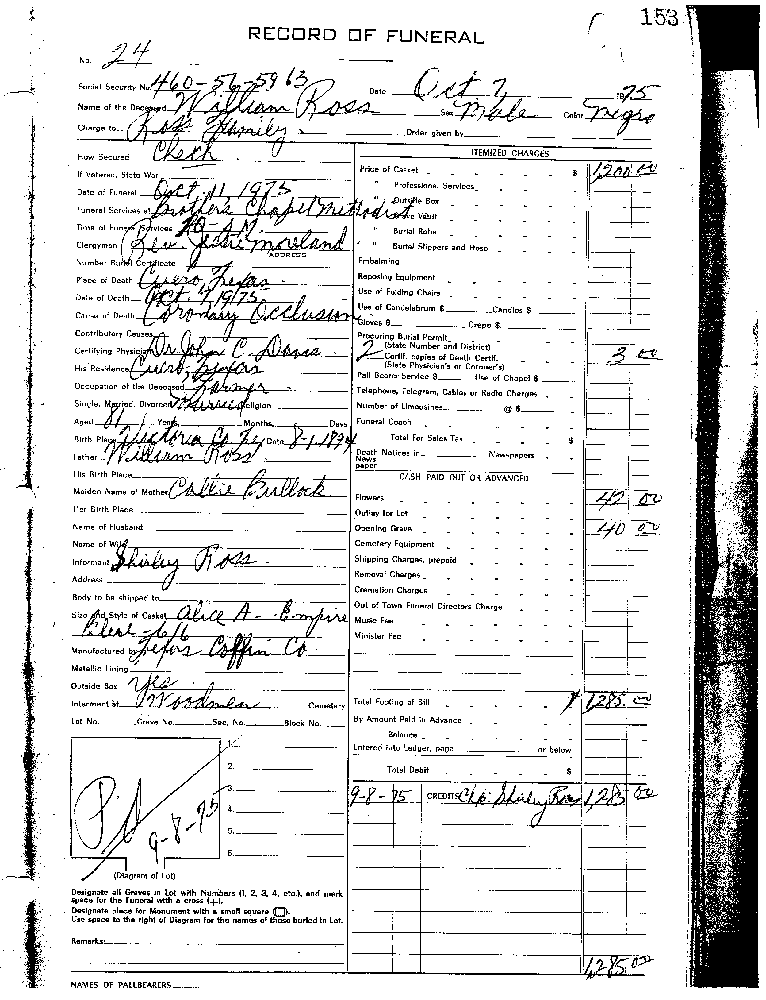 153
RECORD OF FUNERAL
No. 24
Social Security No. 460-56-5963 Date Oct 7, 1975
Name of the Deceased William Ross Sex Male Color Negro
Charge to Ross Family Order given by
How Secured Check
If Veteran, State War
Date of Funeral Oct. 11 1975
Funeral Services at Brother's Chapel Methodist
Time of Funeral Services 10-A.M.
Clergyman Rev. Jessie Moreland
ADDRESS
Number Burial Certificate
Place of Death Cuero, Texas
Date of Death Oct. 7, 1975
Cause of Death Coronary Occlusion
Contributory Causes
Certifying Physician Dr John C. Davis
His Residence Cuero, Texas
Occupation of the Deceased Farmer
Single, Married, Divorced Married Religion
Aged 81 Years Months Days
Birth Place Victoria Co Tex Date 8-1-1894
Father William Ross
His Birth Place
Maiden Name of Mother Callie Bullock
Her Birth Place
Name of Husband
Name of Wife
Informant Shirley Ross
Address
Body to be shipped to
Size and Style of Casket Alice A - Empire
6/6
Manufactured by Texas Coffin Co
Metallic Lining
Outside Box Yes
Interment at Woodmen Cemetery
Lot No. Grave No. Sec. No. Block No.
1.
2.
3.
4.
5.
6.
Pd 9-8-75
(Diagram of Lot)
Designate all Graves in Lot with Numbers (1, 2, 3, 4, etc.), and mark
space for the Funeral with a cross (+).
Designate place for Monument with a small square (□).
Use space to the right of Diagram for the names of those buried in Lot.
Remarks:
NAMES OF PALLBEARERS
ITEMIZED CHARGES
Price of Casket $ 1200.00
" Professional Services
" Outside Box
" Grave Vault
" Burial Robe
" Burial Slippers and Hose
Embalming
Reposing Equipment
Use of Folding Chairs
Use of Candelabrum $ Candles $
Gloves $ Crepe $
Procuring Burial Permit
(State Number and District)
2 Certif. copies of Death Certif. 3 00
(State Physician's or Coroner's)
Pall Bearer Service $ Use of Chapel $
Telephone, Telegram, Cables or Radio Charges
Number of Limousines @ $
Funeral Coach
Total For Sales Tax $
Death Notices in Newspapers
News
paper
CASH PAID OUT OR ADVANCED
Flowers 42 00
Outlay for Lot
Opening Grave 40 00
Cemetery Equipment
Shipping Charges, prepaid
Removal Charges
Cremation Charges
Out of Town Funeral Directors Charge
Music Fee
Minister Fee
Total Footing of Bill $ 1,285.00
By Amount Paid in Advance
Balance
Entered into Ledger, page or below
Total Debit $
9-8-75 CREDITS Shirley Ross 1,285 00
1,285.00